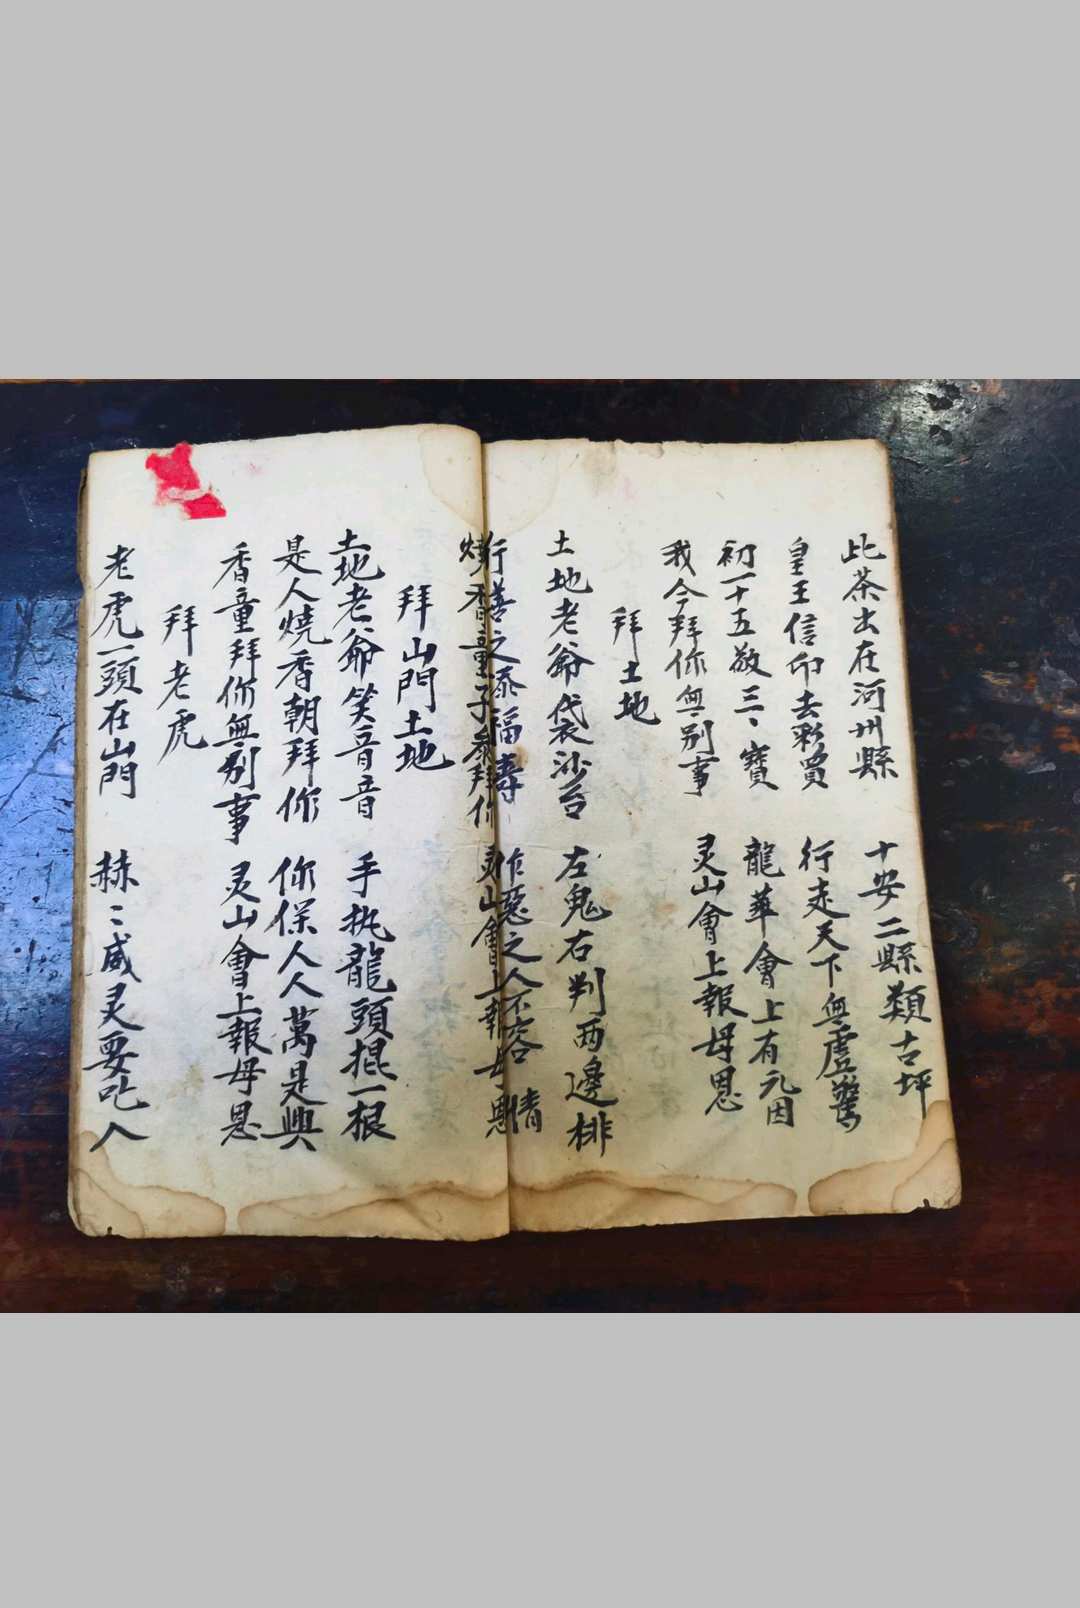 此茶出在河州縣 十安二縣類古坪
皇王信印去彩買 行走天下無虛驚
初一十五敬三寶 龍華會上有元因
我今拜你無別事 灵山會上報母恩
拜土地
土地老爺袋沙台 左鬼右判两邊排
行善之添福壽 作惡之人不容情
燒香童子參拜你 灵山會上報母恩
拜山門土地
土地老爺笑音音 手执龍頭棍一根
是人燒香朝拜你 你保人人萬是興
香童拜你無別事 灵山會上報母恩
拜老虎
老虎一頭在山門 赫〻威灵要吃人